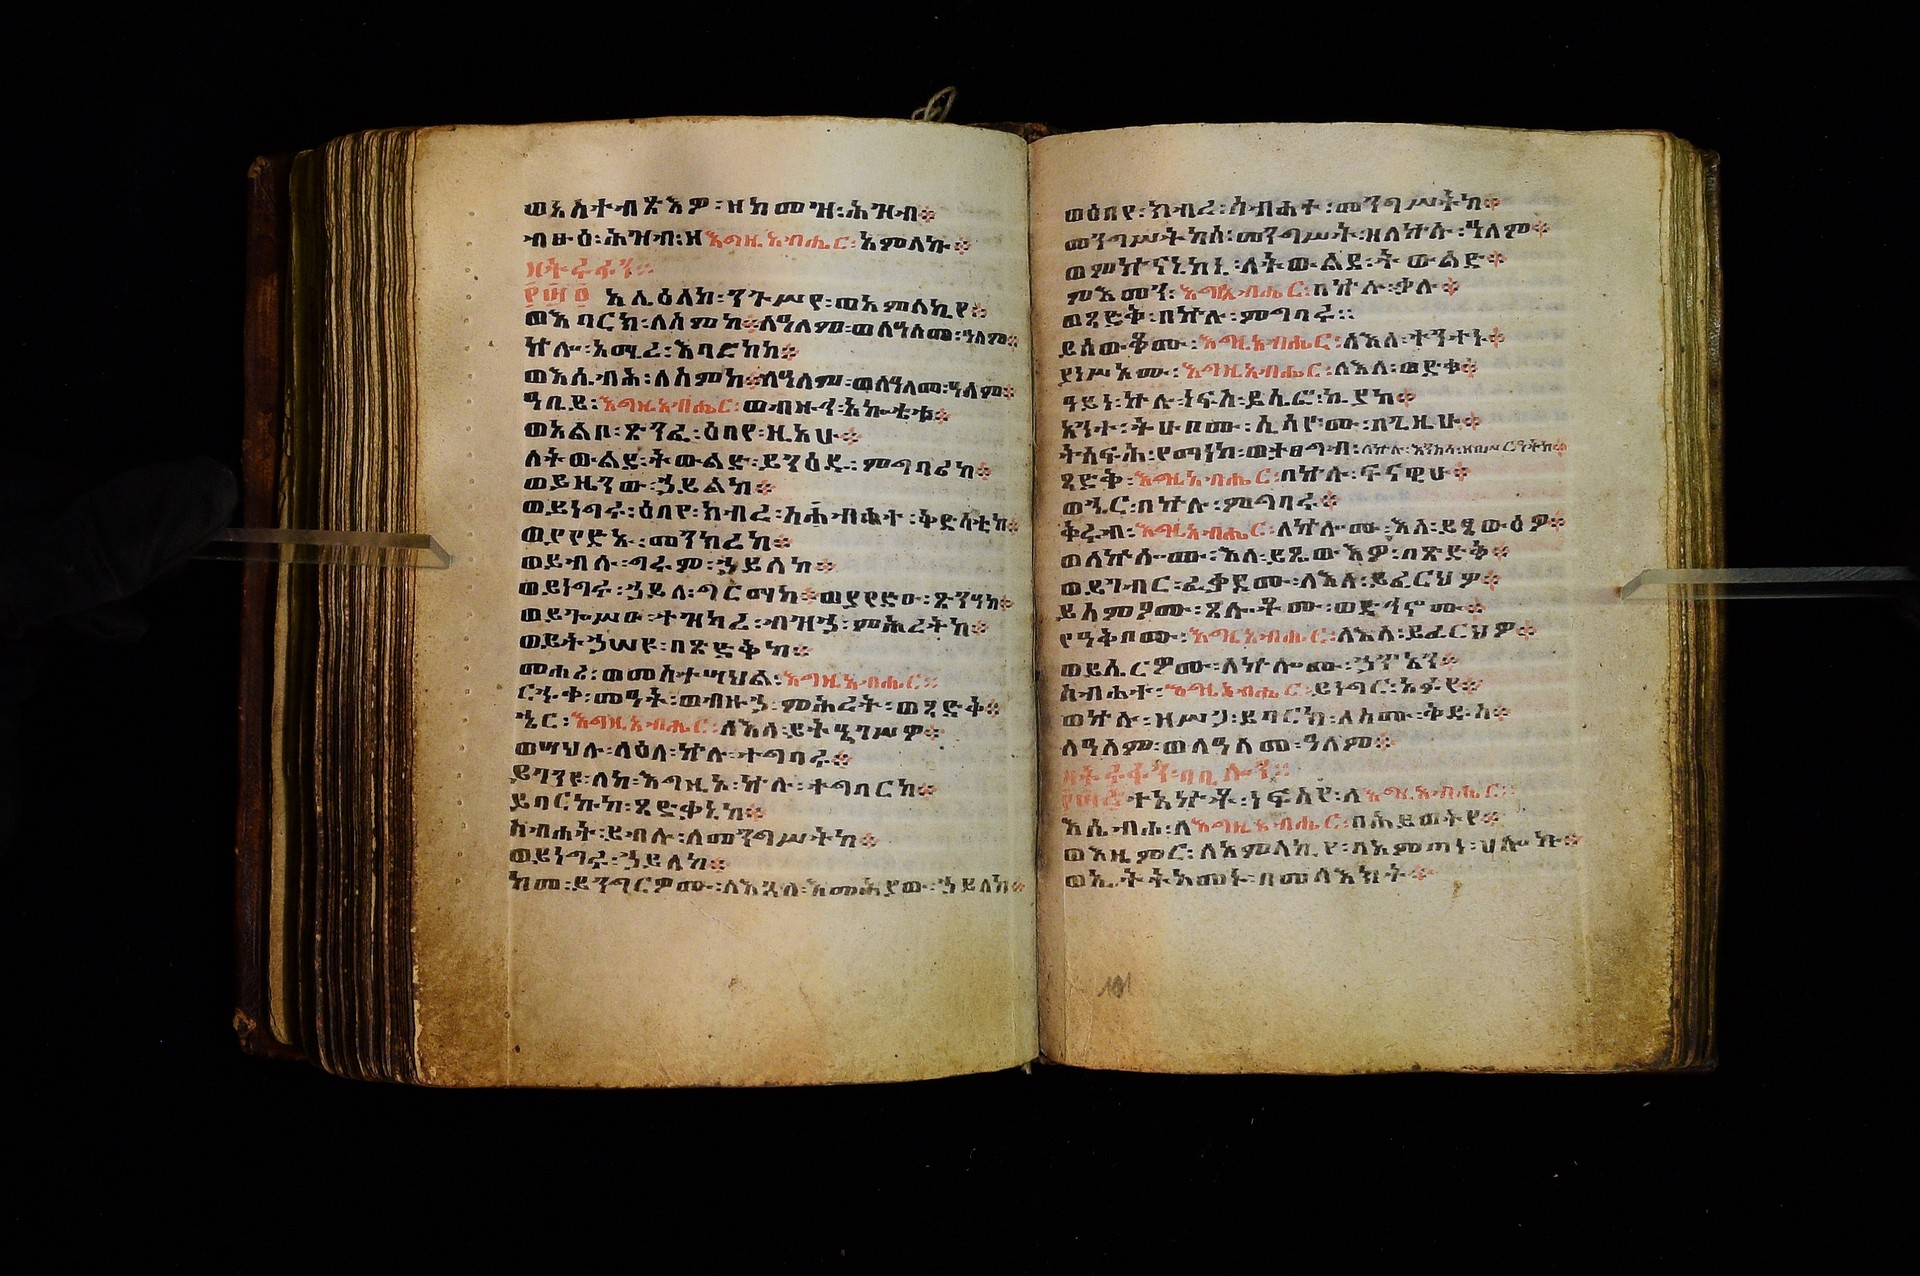 ወአስተብጽእዎ፡ ዘከመዝ፡ ሕዝብ፨
ብፁዕ፡ ሕዝብ፡ ዘእግዚአብሔር፡ አምላኩ፨
፻፵፬ አሌዕለከ፡ ንጉሥየ፡ ወአምላኪየ፨
ወእባርክ፡ ለስምከ፨ ለዓለም፡ ወለዓለመ፡ ዓለም፨
ኵሎ፡ አሚረ፡ እባርከከ፨
ወእሴብሕ፡ ለስምከ፨ ለዓለም፡ ወለዓለመ፡ ዓለም፨
ዓቢይ፡ እግዚአብሔር፡ ወብዙኅ፡ አኰቴቱ፨
ወአልቦ፡ ጽንፈ፡ ዕበየ፡ ዚአሁ፨
ለትውልደ፡ ትውልድ፡ ይንዕዱ፡ ምግባሪከ፨
ወይዜንው፡ ኃይልከ፨
ወይነግሩ፡ ዕበየ፡ ክብረ፡ ስብሐተ፡ ቅድሳቲከ፨
ወያየድኡ፡ መንክረከ፨
ወይብሉ፡ ግሩም፡ ኃይልከ፨
ወይነግሩ፡ ኃይለ፡ ግርማከ፨ ወያየድዑ፡ ጽንዓከ፨
ወይጐሥዑ፡ ተዝካረ፡ ብዝኃ፡ ምሕረትከ፨
ወይትኃሠዩ፡ በጽድቅከ፨
መሐሪ፡ ወመስተሣህል፡ እግዚአብሔር፨
ርኁቀ፡ መዓት፡ ወብዙኃ፡ ምሕረት፡ ወጻድቅ፨
ኄር፡ እግዚአብሔር፡ ለእለ፡ ይትዔገሥዎ፨
ወሣህሉ፡ ላዕለ፡ ኵሉ፡ ተግባሩ፨
ይገንዩ፡ ለከ፡ እግዚኦ፡ ኵሉ፡ ተግባርከ፨
ይባርኩከ፡ ጻድቃኒከ፨
ስብሐት፡ ይብሉ፡ ለመንግሥትከ፨
ወይነግሩ፡ ኃይለከ፨
ከመ፡ ይንግርዎሙ፡ ለእጓለ፡ እመሕያው፡ ኃይለከ፨
ወዕበየ፡ ክብረ፡ ስብሐተ፡ መንግሥትከ፨
መንግሥትከሰ፡ መንግሥት፡ ዘለኵሉ፡ ዓለም፨
ወምኵናኒከኒ፡ ለትውልደ፡ ትውልድ፨
ምእመን፡ እግዚአብሔር፡ በኵሉ፡ ቃሉ፨
ወጻድቅ፡ በኵሉ፡ ምግባሩ፨
ይሰውቆሙ፡ እግዚአብሔር፡ ለእለ፡ ተንተኑ፨
ያነሥኦሙ፡ እግዚአብሔር፡ ለእለ፡ ወድቁ፨
ዓይነ፡ ኵሉ፡ ነፍስ፡ ይሴፎ፡ ኪያከ፨
አንተ፡ ትሁቦሙ፡ ሲሳዮሙ፡ በጊዜሁ፨
ትሰፍሕ፡ የማነከ፡ ወታፀግብ፡ ለኵሉ፡ እንስሳ፡ ዘበሥርዓትከ፨
ጻድቅ፡ እግዚአብሔር፡ በኵሉ፡ ፍናዊሁ፨
ወኄር፡ በኵሉ፡ ምግባሩ፨
ቅሩብ፡ እግዚአብሔር፡ ለኵሎሙ፡ እለ፡ ይጼውዕዎ፨
ወለኵሎሙ፡ እለ፡ ይጼውእዎ፡ በጽድቅ፨
ወይገብር፡ ፈቃዶሙ፡ ለእለ፡ ይፈርህዎ፨
ይሰምዖሙ፡ ጸሎቶሙ፡ ወድኅኖሙ፨
የዓቅቦሙ፡ እግዚአብሔር፡ ለእለ፡ ይፈርህዎ፨
ወይሴርዎሙ፡ ለኵሎሙ፡ ኃጥኣን፨
ስብሐተ፡ እግዚአብሔር፡ ይነግር፡ አፉየ፨
ወኵሉ፡ ዘሥጋ፡ ይባርክ፡ ለስሙ፡ ቅዱስ፨
ለዓለም፡ ወለዓለመ፡ ዓለም፨
ተአኵቶ፡ ነፍስየ፡ ለእግዚአብሔር፨
እሴብሖ፡ ለእግዚአብሔር፡ በሕይወትየ፨
ወእዜምር፡ ለአምላኪየ፡ በአምጣነ፡ ሀሎኩ፨
ወኢትትአመኑ፡ በመላእክት፨